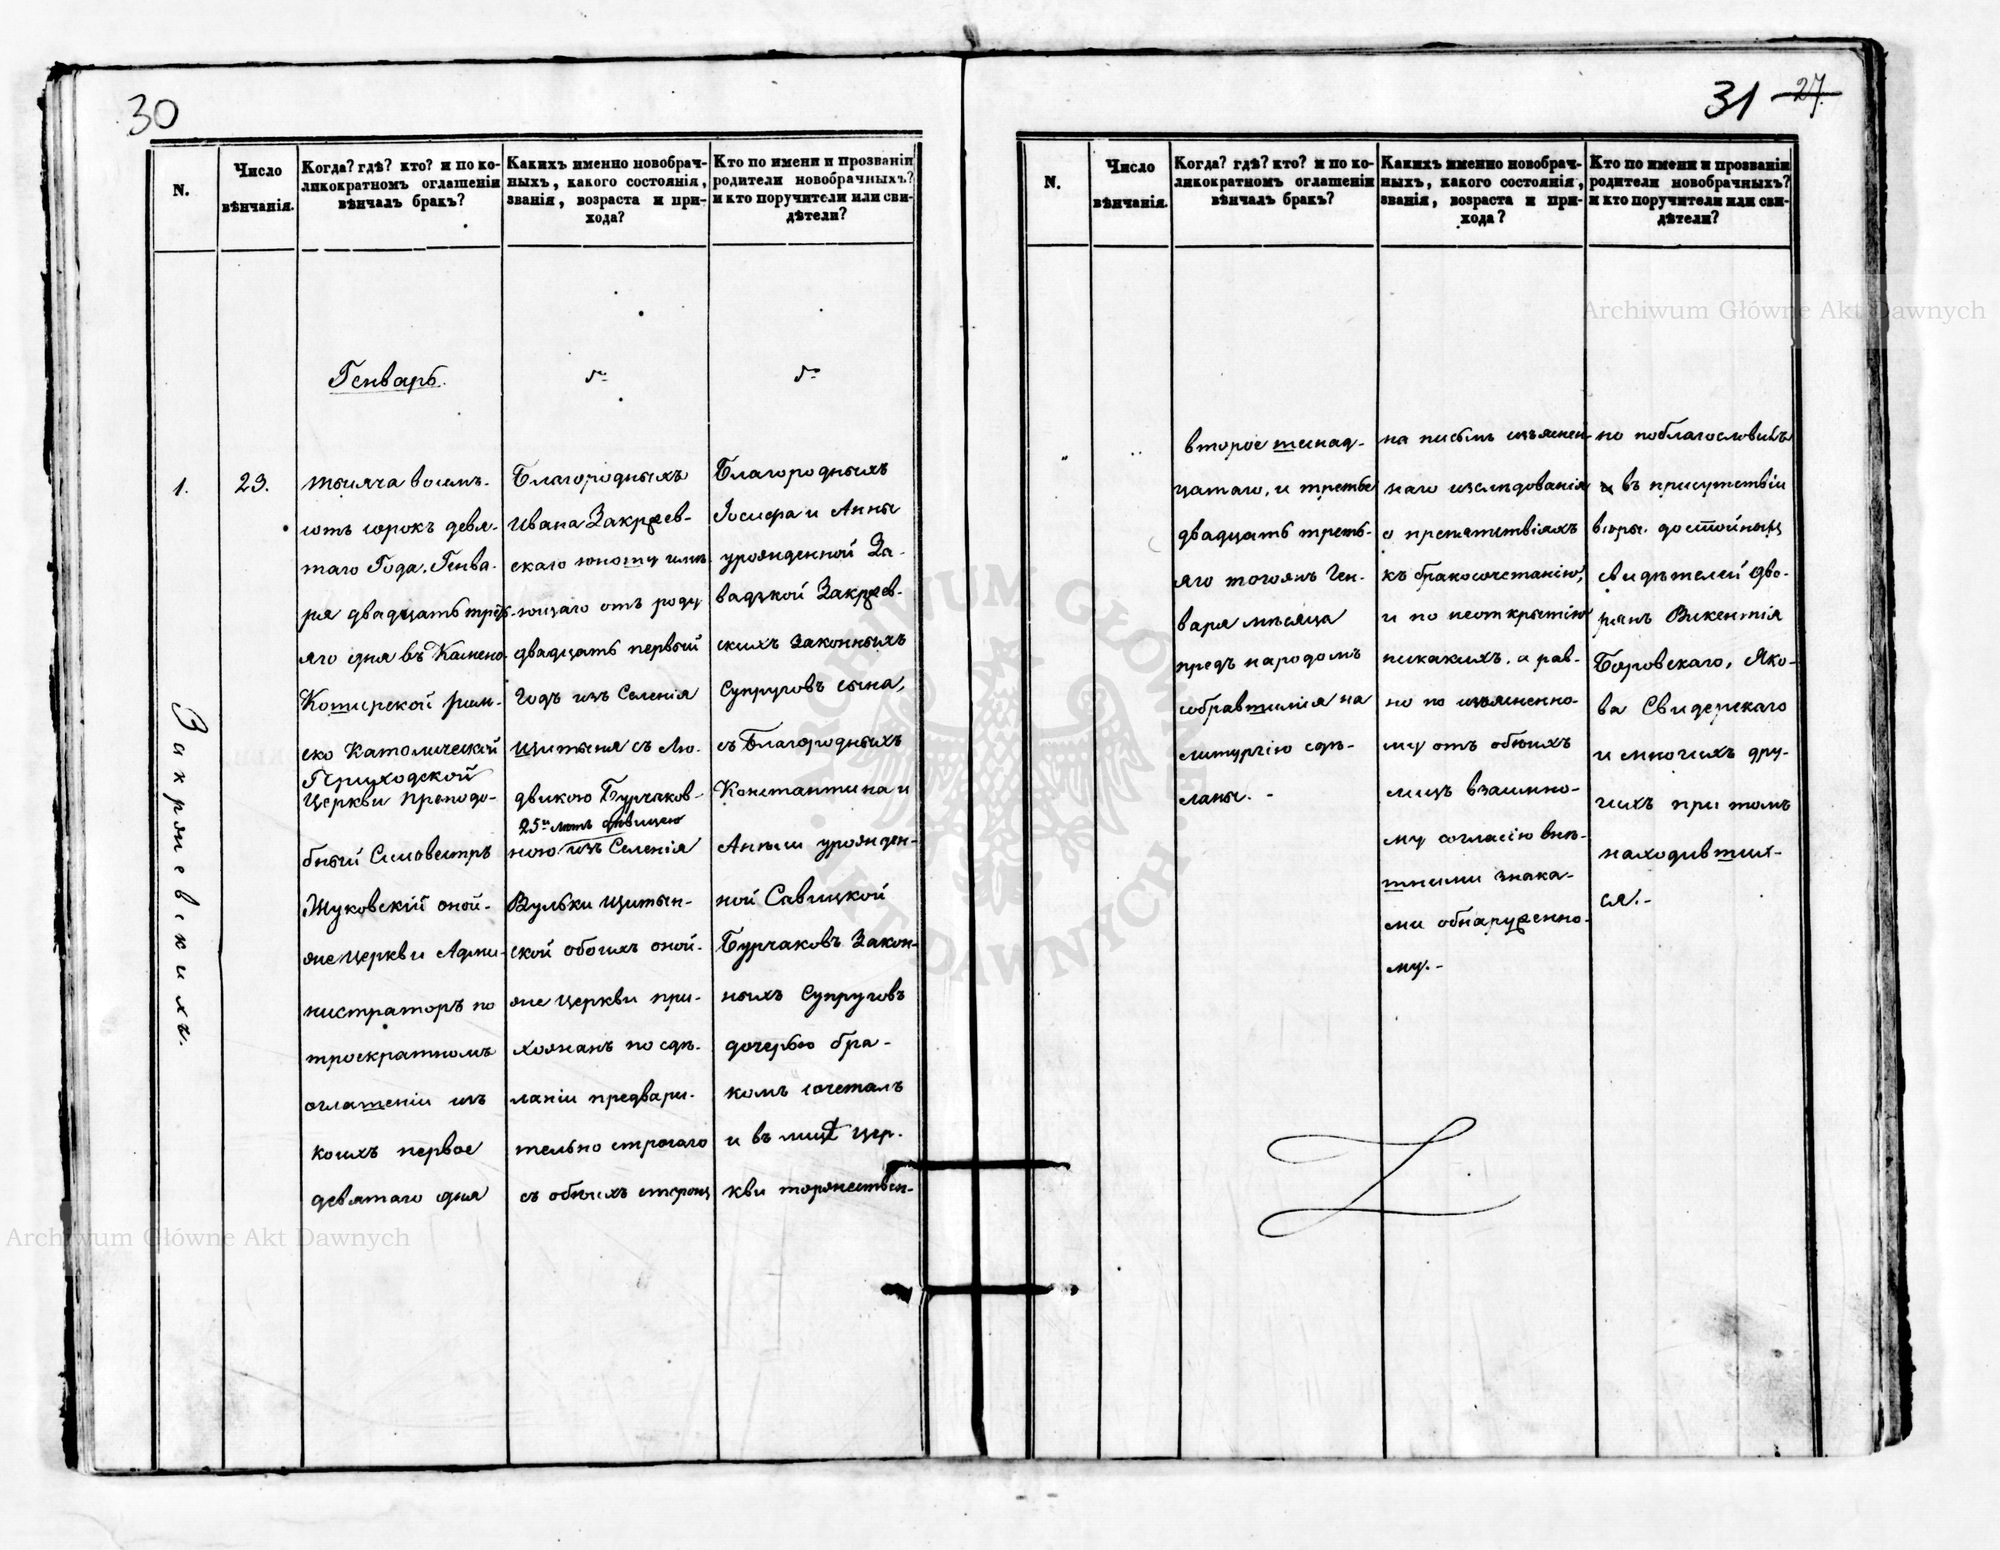 30
N.
Число
вѣнчанія.
Когда? гдѣ? кто? и по ко-
ликократномъ оглашеніи
вѣнчалъ бракъ?
Какихъ именно новобрач-
ныхъ, какого состоянія,
званія, возраста и при-
хода?
Кто по имени и прозванію
родители новобрачныхъ?
и кто поручители или сви-
дѣтели?
Генварь.
1.
23.
Закржевскихъ.
тысяча восемь-
сотъ сорокъ девя-
таго Года, Генва-
ря двадцать треть-
яго дня въ Камено
Коширской рим-
ско Католической
Приходской
Церкви преподо-
бный Сильвестръ
Жуковскій оной-
же Церкви Адми-
нистраторъ по
троекратномъ
оглашеніи изъ
коихъ первое
девятаго дня
Благородныхъ
Ивана Закржев-
скаго юношу имѣ-
ющаго отъ роду
двадцать первый
Годъ изъ Селенія
Щитыня съ Лю-
двикою Бурчаков-
25ти лѣтъ дѣвицею
ною изъ Селенія
Вульки Щитын-
ской обоихъ оной-
же Церкви при-
хожанъ по сдѣ-
ланіи предвари-
тельно строгаго
съ обоихъ сторонъ
Благородныхъ
Іосифа и Анны
урожденной За-
вадзкой Закржев-
скихъ Законныхъ
Супруговъ сына,
съ Благородныхъ
Константина и
Анны урожден-
ной Савицкой
Бурчаковъ Закон-
ныхъ Супруговъ
дочерью бра-
комъ сочеталъ
и въ лицѣ Цер-
кви торжествен-
31 27.
N.
Число
вѣнчанія.
Когда? гдѣ? кто? и по ко-
ликократномъ оглашеніи
вѣнчалъ бракъ?
Какихъ именно новобрач-
ныхъ, какого состоянія,
званія, возраста и при-
хода?
Кто по имени и прозванію
родители новобрачныхъ?
и кто поручители или сви-
дѣтели?
второе шинад-
цатаго, и третье
двадцать треть-
яго тогожъ Ген-
варя мѣсяца
предъ народомъ
собравшимся на
литургію сдѣ-
ланы.-
на письмѣ изъяснен-
наго изслѣдованія
о препятствіяхъ
къ бракосочетанію,
и по неоткрытію
никакихъ, а рав-
но по изъясненно-
му отъ обоихъ
лицъ взаимно-
му согласію внѣ-
шними знака-
ми обнаруженно-
му.-
но поблагословилъ
въ присутствіи
вѣры достойныхъ
свидѣтелей Дво-
рянъ Викентія
Боровскаго, Яко-
ва Свидерскаго
и многихъ дру-
гихъ при томъ
находивших-
ся.-
Archiwum Główne Akt Dawnych
ARCHIWUM GŁÓWNE AKT DAWNYCH
Archiwum Główne Akt Dawnych